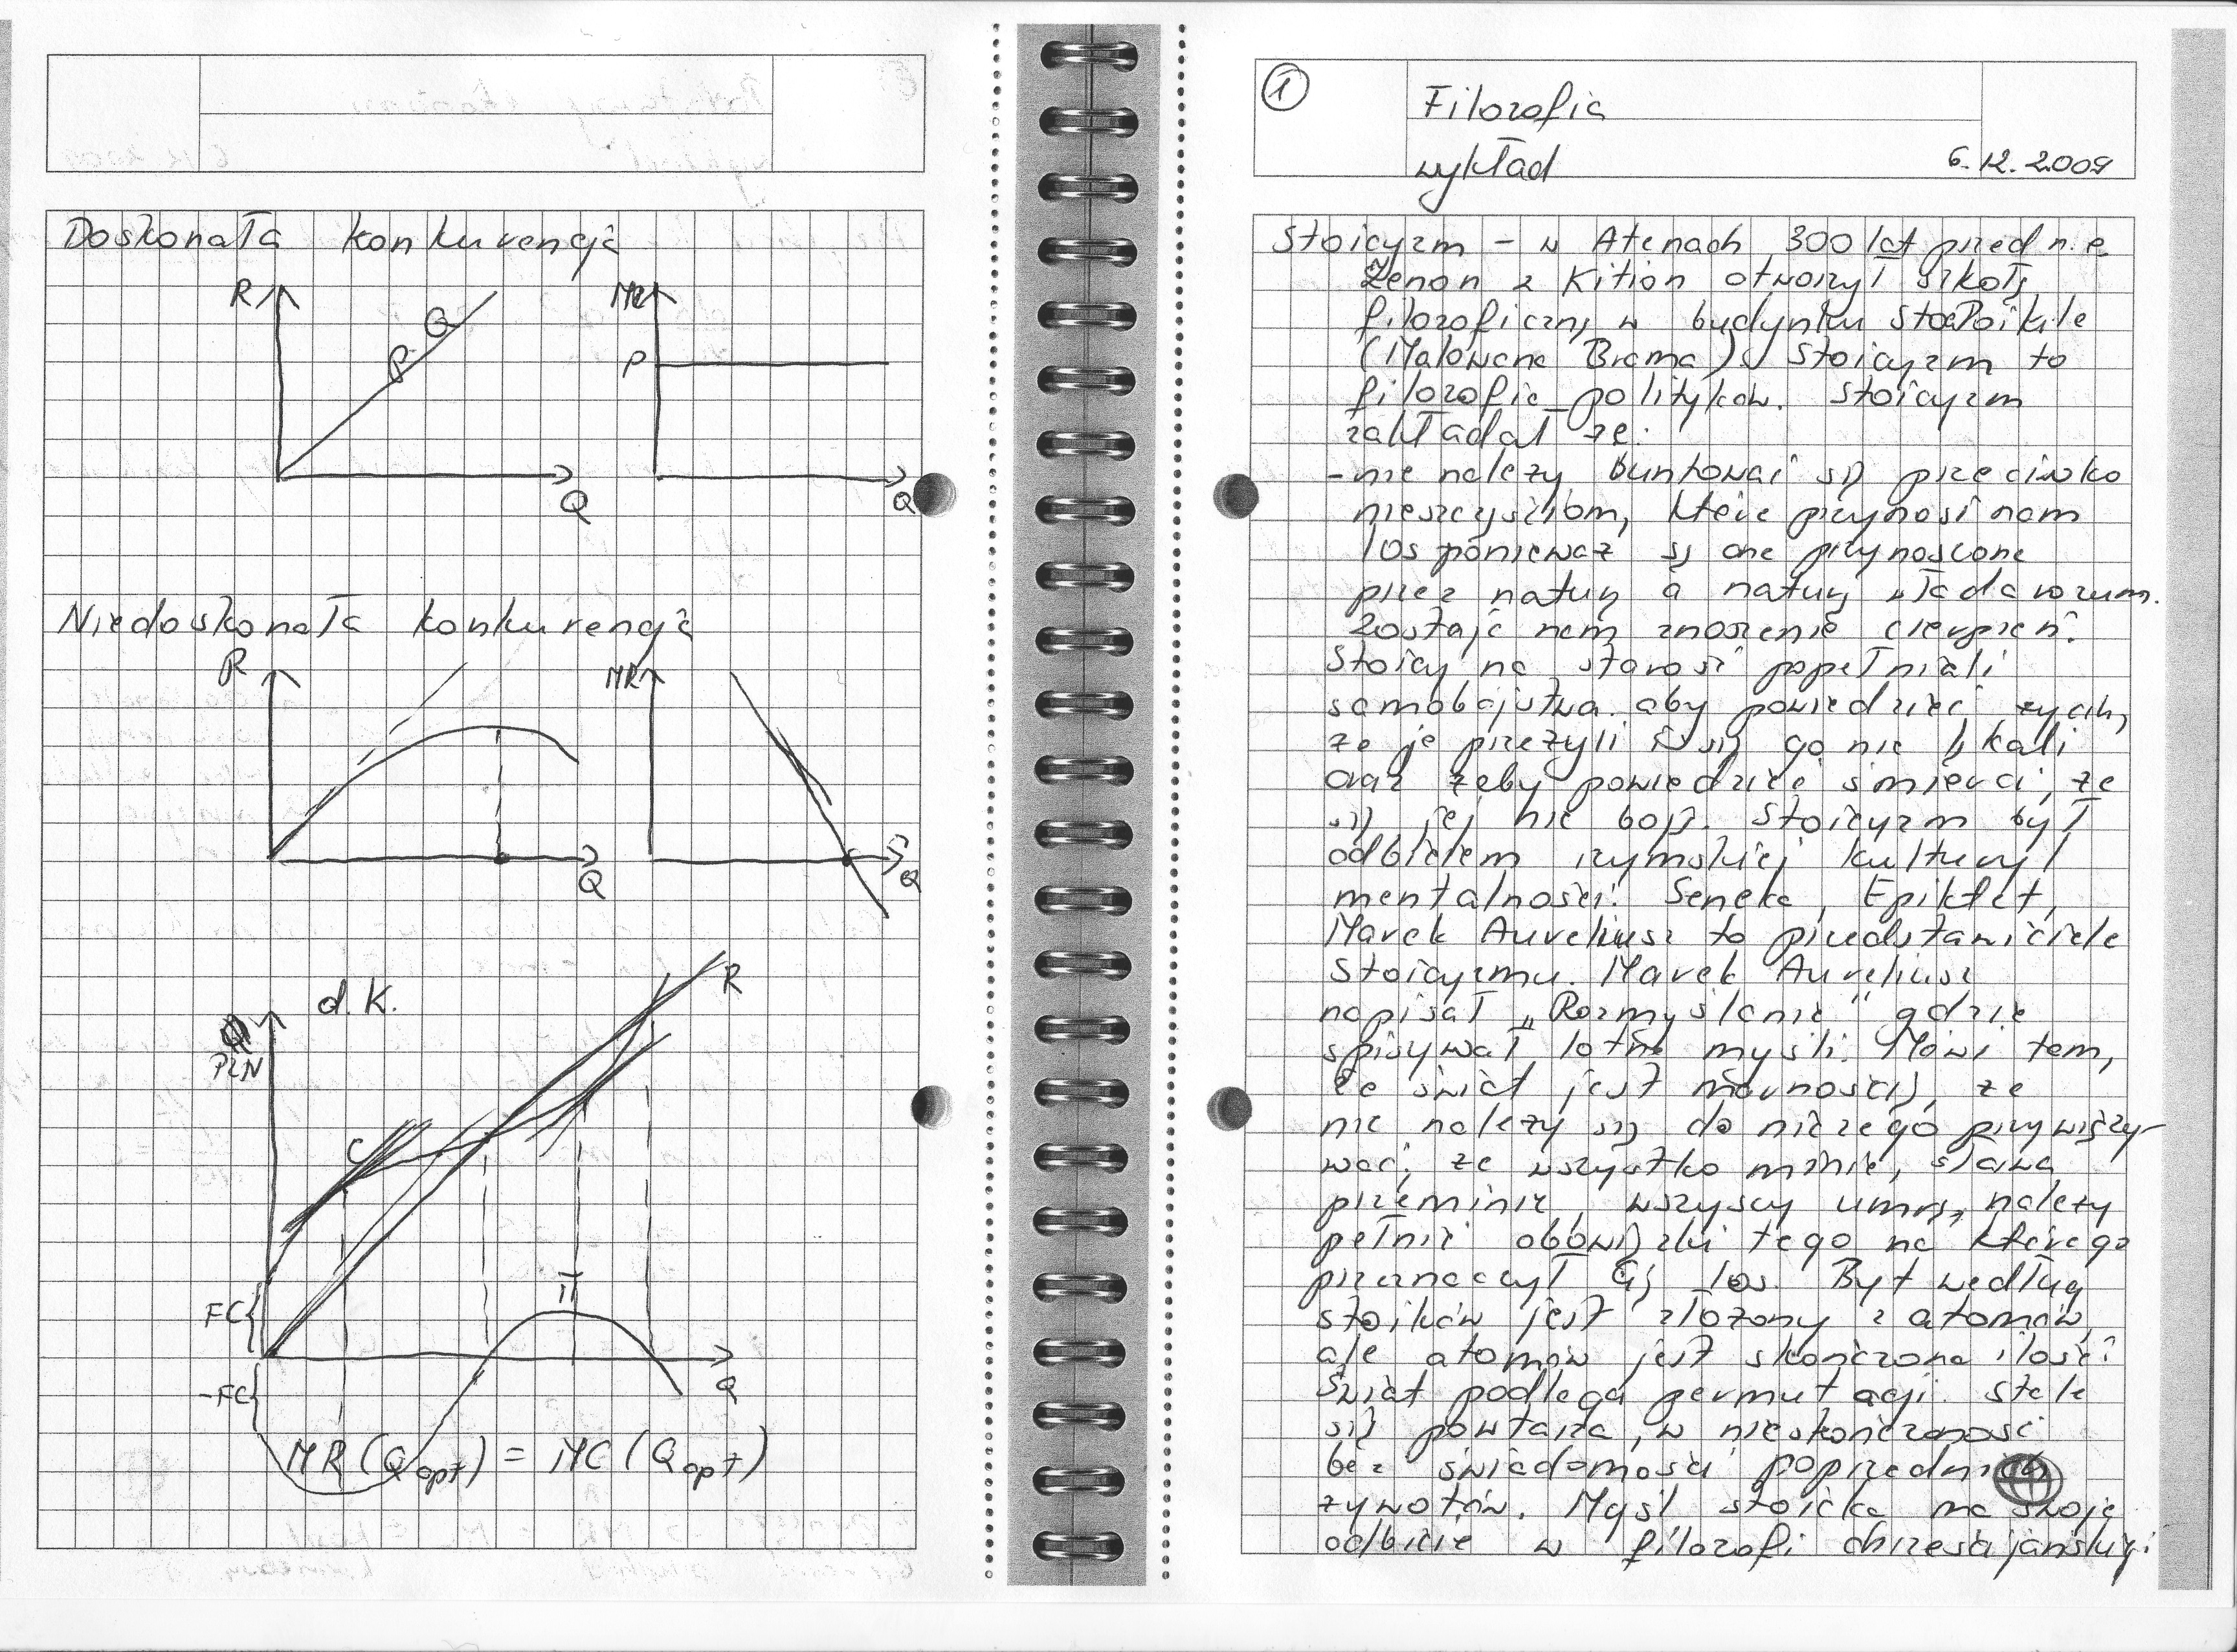 Doskonała konkurencja
R
P·Q
Q
MR
P
Q
Niedoskonała konkurencja
R
Q
MR
Q
d.K.
PLN
R
C
FC
π
-FC
Q
MR(Qopt) = MC(Qopt)
1
Filozofia
wykład
6.12.2009
Stoicyzm – w Atenach 300 lat przed n.e.
Zenon z Kition otworzył szkołę
filozoficzną w budynku Stoa Poikile
(Malowana Brama). Stoicyzm to
filozofia polityków. Stoicyzm
zakładał że:
- nie należy buntować się przeciwko
nieszczęściom, które przynosi nam
los ponieważ są one przynoszone
przez naturę a naturą włada rozum.
Zostaje nam znoszenie cierpień.
Stoicy na starość popełniali
samobójstwa aby powiedzieć życiu,
że je przeżyli i się go nie lękali
oraz żeby powiedzieć śmierci, że
się jej nie boją. Stoicyzm był
odbiciem rzymskiej kultury i
mentalności. Seneka, Epiktet,
Marek Aureliusz to przedstawiciele
stoicyzmu. Marek Aureliusz
napisał „Rozmyślanie" gdzie
spisywał lotne myśli. Mówi tam,
że świat jest marnością, że
nie należy się do niczego przywiązy-
wać, że wszystko minie, sława
przeminie, wszyscy umrą, należy
pełnić obowiązki tego na którego
przeznaczył Cię los. Byt według
stoików jest złożony z atomów,
ale atomów jest skończona ilość.
Świat podlega permutacji. Stale
się powtarza, w nieskończoność
bez świadomości poprzednich
żywotów. Myśl stoicka ma swoje
odbicie w filozofi chrześcijańskiej.